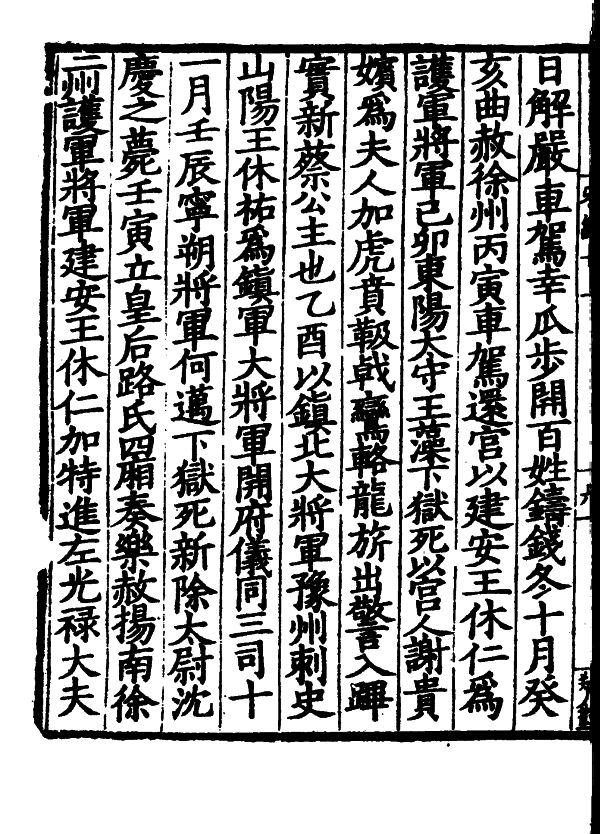 日解嚴車駕幸瓜步開百姓鑄錢冬十月癸
亥曲赦徐州丙寅車駕還宮以建安王休仁爲
護軍將軍己卯東陽大守王藻下獄死以宮人謝貴
嬪爲夫人加虎賁靸戟鸞輅龍旂出警入蹕
實新蔡公主也乙酉以鎮北大將軍豫州刺史
山陽王休祐爲鎮軍大將軍開府儀同三司十
一月壬辰寧朔將軍何邁下獄死新除太尉沈
慶之薨壬寅立皇后路氏四廂奏樂赦揚南徐
二州護軍將軍建安王休仁加特進左光禄大夫